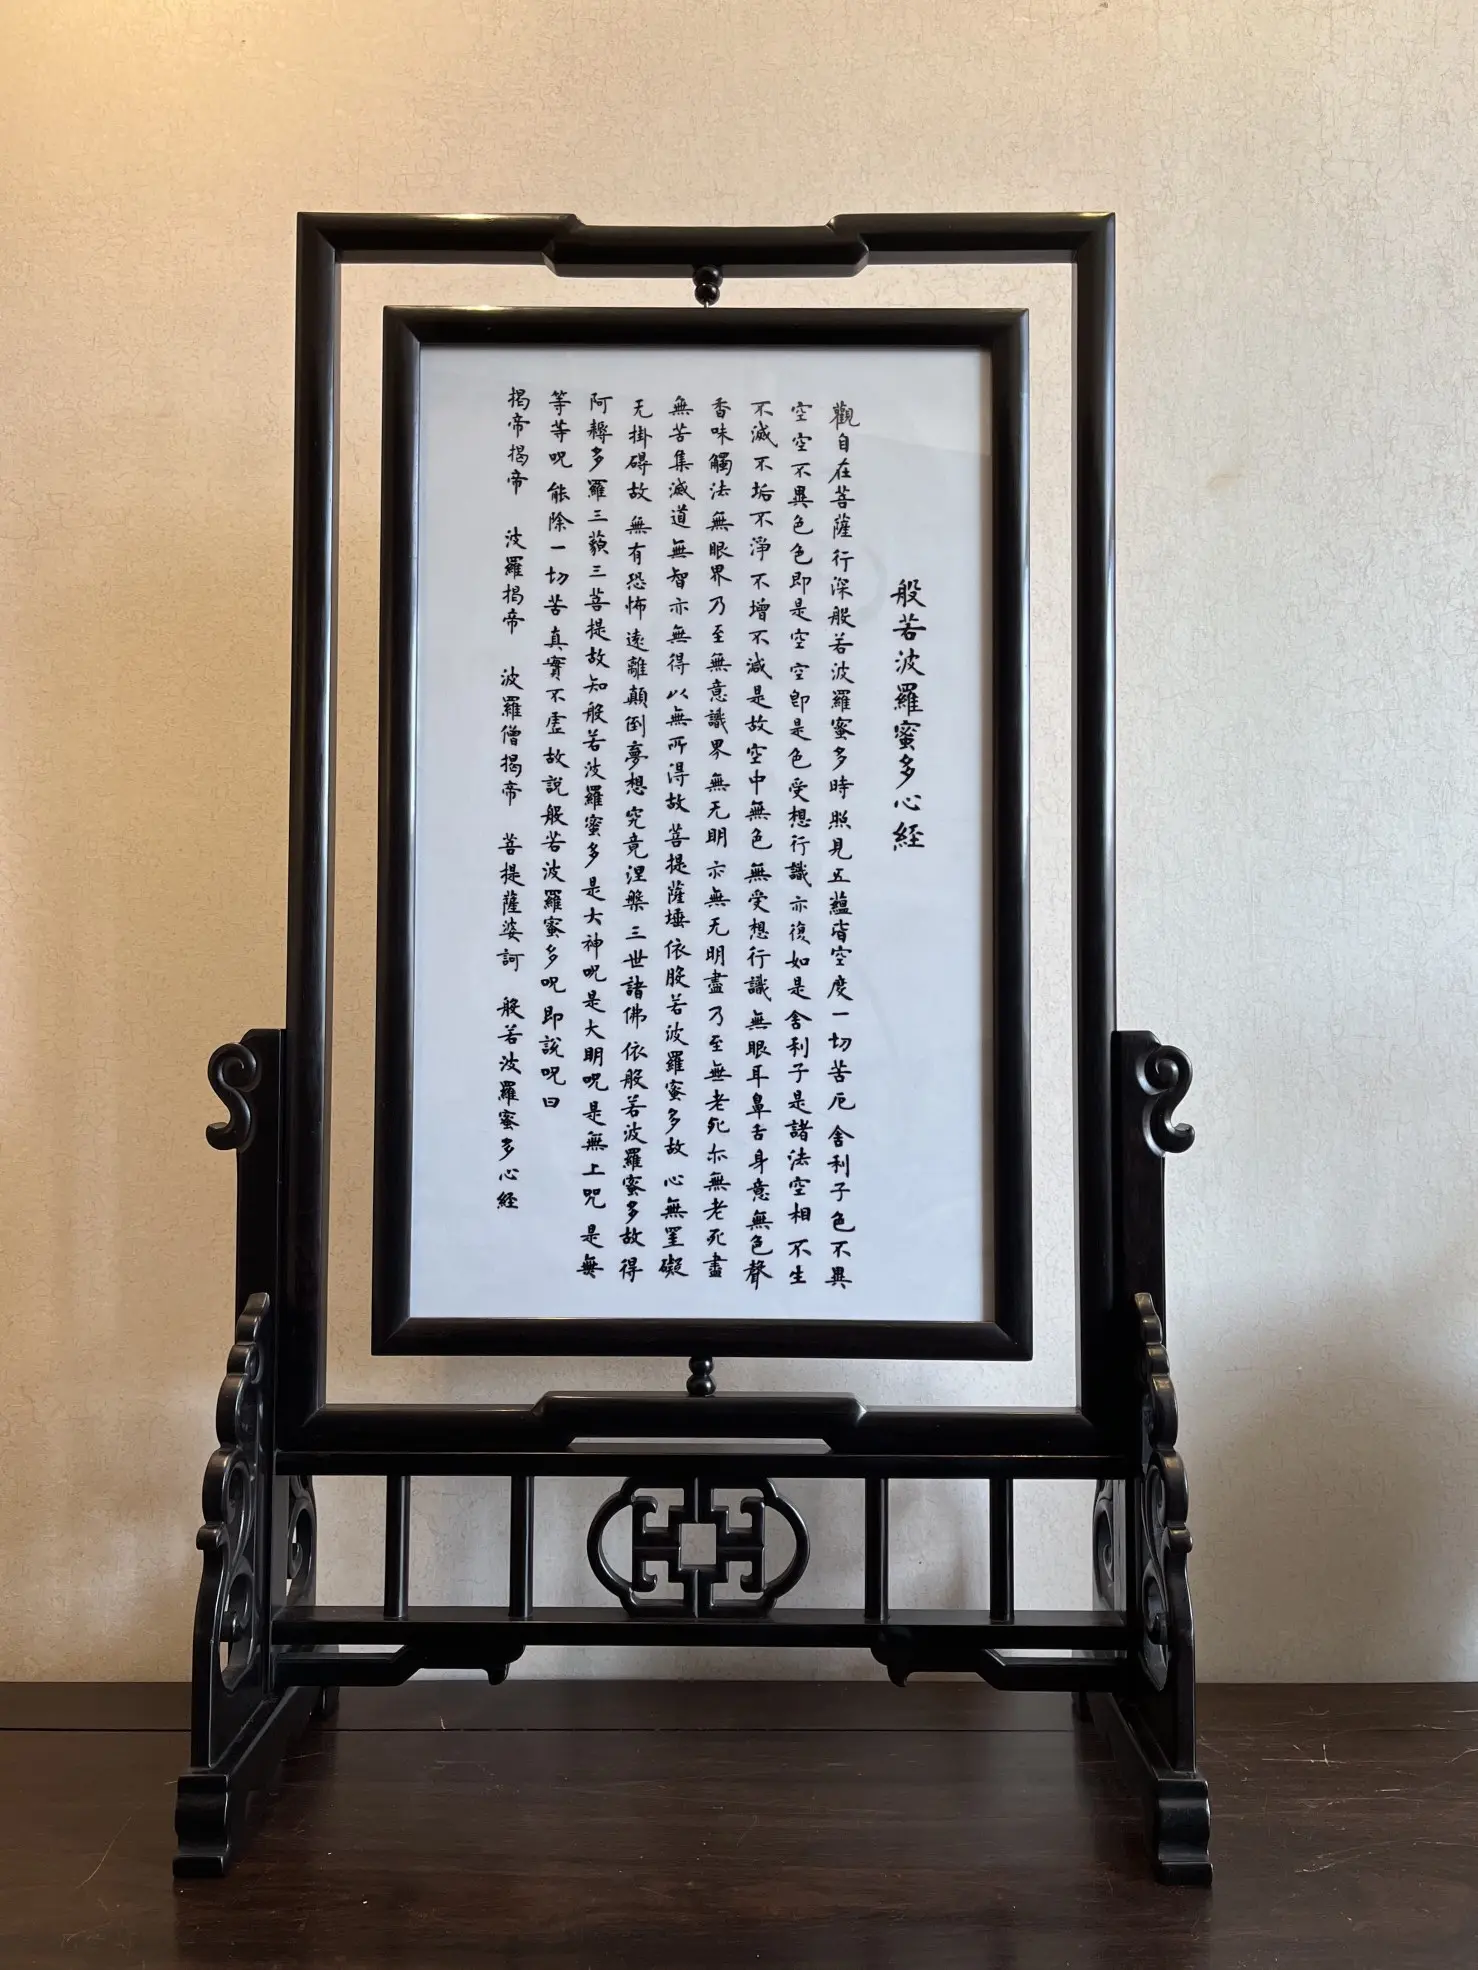 般若波羅蜜多心経
觀自在菩薩行深般若波羅蜜多時照見五蘊皆空度一切苦厄舍利子色不異
空空不異色色即是空空即是色受想行識亦復如是舍利子是諸法空相不生
不滅不垢不淨不增不減是故空中無色無受想行識無眼耳鼻舌身意無色聲
香味觸法無眼界乃至無意識界無无明亦無无明盡乃至無老死亦無老死盡
無苦集滅道無智亦無得以無所得故菩提薩埵依般若波羅蜜多故心無罣礙
无掛碍故無有恐怖遠離顛倒夢想究竟涅槃三世諸佛依般若波羅蜜多故得
阿耨多羅三藐三菩提故知般若波羅蜜多是大神呪是大明呪是無上咒是無
等等呪能除一切苦真實不虛故説般若波羅蜜多呪即說呪曰
揭帝揭帝 波羅揭帝 波羅僧揭帝 菩提薩婆訶 般若波羅蜜多心経